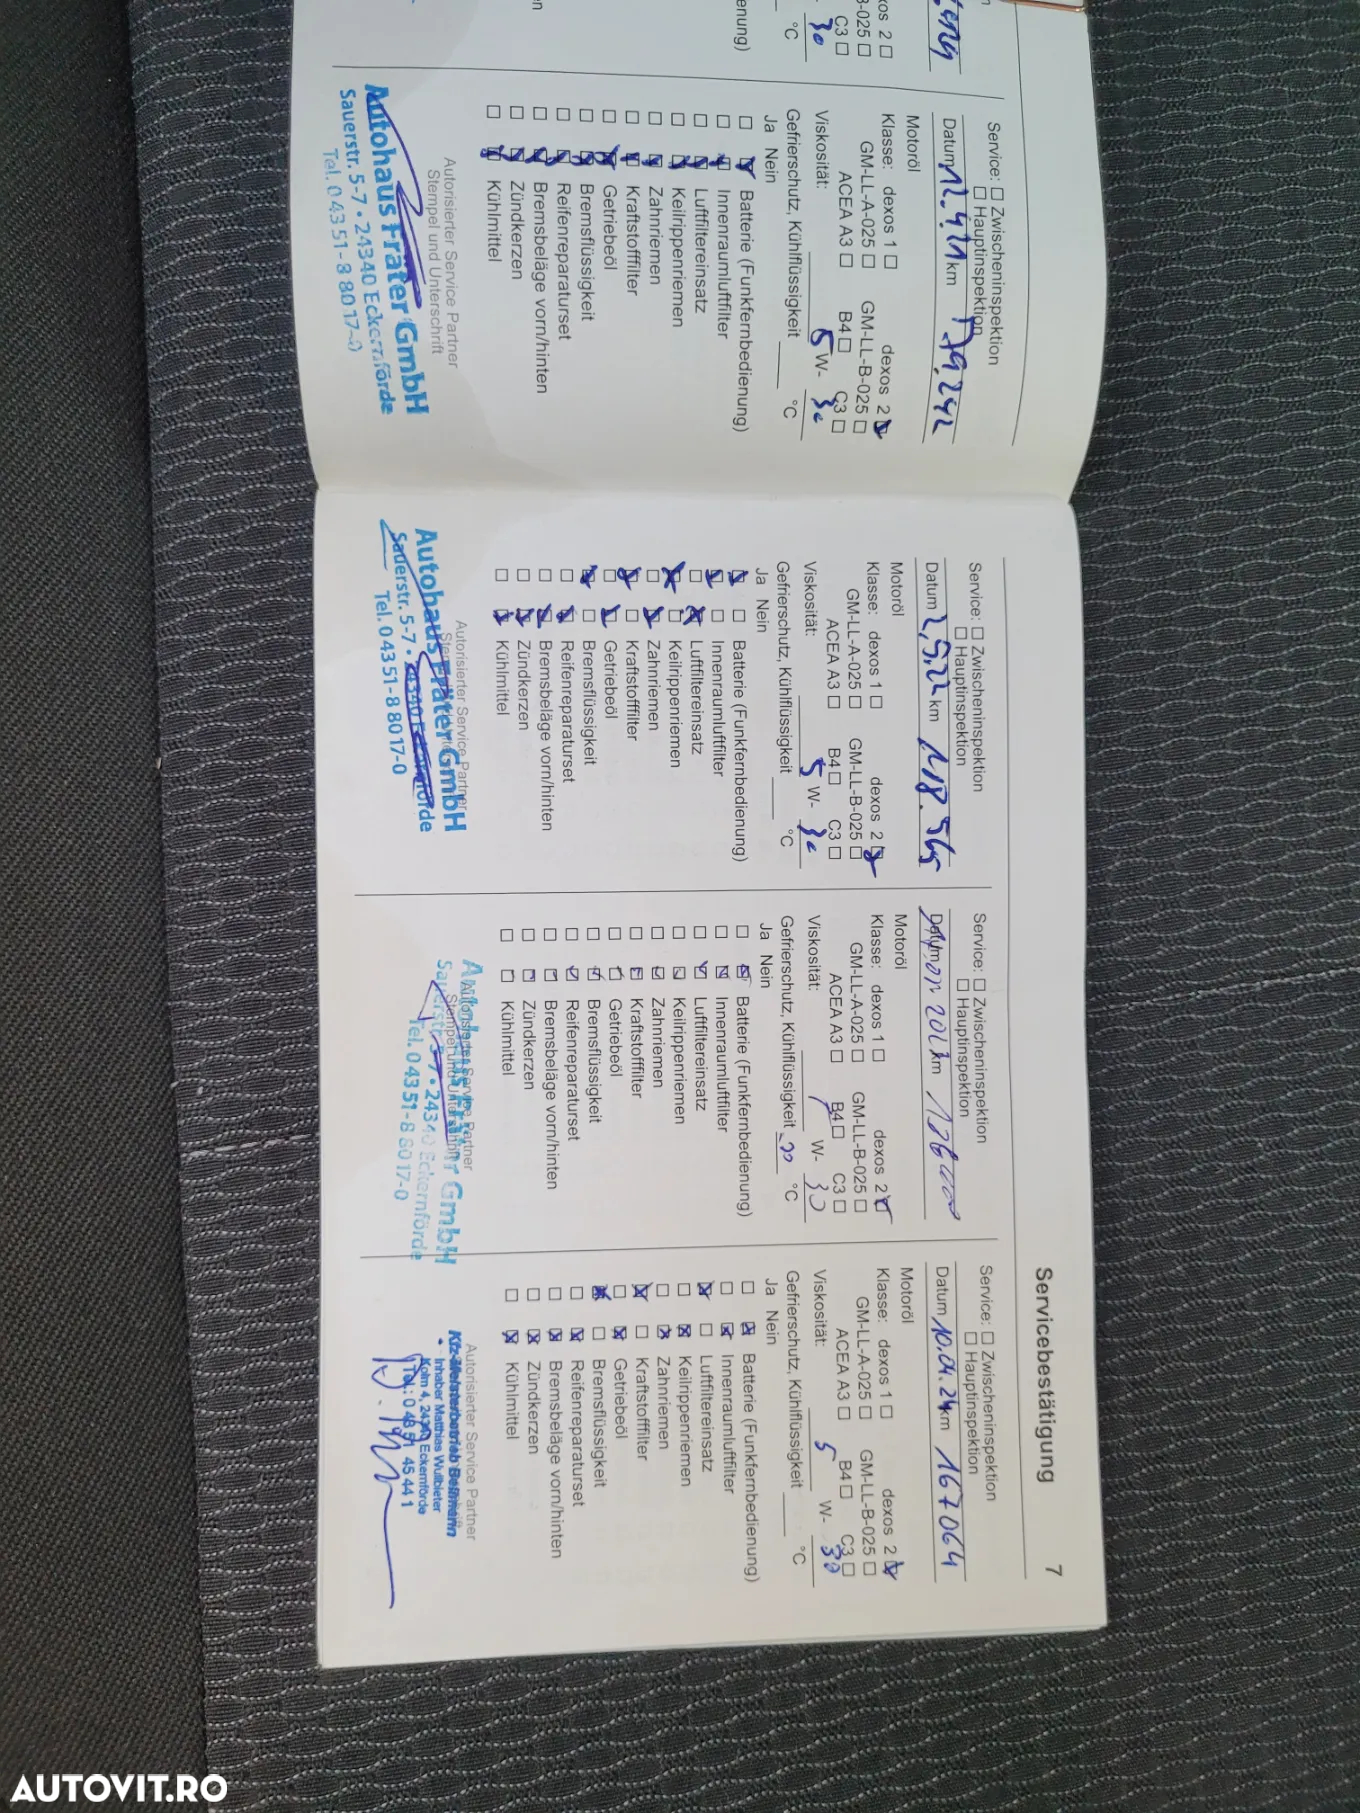 Servicebestätigung
7
dexos 2
B-025
C3
30
°C
enung)
Service: Zwischeninspektion
Hauptinspektion
Datum 12.4.21 km 79.242
Motoröl
Klasse: dexos 1 dexos 2
GM-LL-A-025 GM-LL-B-025
ACEA A3 B4 C3
Viskosität: 5 W- 30
Gefrierschutz, Kühlflüssigkeit °C
Ja Nein
Batterie (Funkfernbedienung)
Innenraumluftfilter
Luftfiltereinsatz
Keilrippenriemen
Zahnriemen
Kraftstofffilter
Getriebeöl
Bremsflüssigkeit
Reifenreparaturset
Bremsbeläge vorn/hinten
Zündkerzen
Kühlmittel
Autorisierter Service Partner
Stempel und Unterschrift
Autohaus Fräter GmbH
Sauerstr. 5-7 • 24340 Eckernförde
Tel. 0 43 51 - 8 80 17-0
Service: Zwischeninspektion
Hauptinspektion
Datum 2.5.22 km 118.565
Motoröl
Klasse: dexos 1 dexos 2
GM-LL-A-025 GM-LL-B-025
ACEA A3 B4 C3
Viskosität: 5 W- 30
Gefrierschutz, Kühlflüssigkeit °C
Ja Nein
Batterie (Funkfernbedienung)
Innenraumluftfilter
Luftfiltereinsatz
Keilrippenriemen
Zahnriemen
Kraftstofffilter
Getriebeöl
Bremsflüssigkeit
Reifenreparaturset
Bremsbeläge vorn/hinten
Zündkerzen
Kühlmittel
Autorisierter Service Partner
Autohaus Fräter GmbH
Sauerstr. 5-7 • 24340 Eckernförde
Tel. 0 43 51-8 80 17-0
Service: Zwischeninspektion
Hauptinspektion
Datum km
Motoröl
Klasse: dexos 1 dexos 2
GM-LL-A-025 GM-LL-B-025
ACEA A3 B4 C3
Viskosität: W- 30
Gefrierschutz, Kühlflüssigkeit °C
Ja Nein
Batterie (Funkfernbedienung)
Innenraumluftfilter
Luftfiltereinsatz
Keilrippenriemen
Zahnriemen
Kraftstofffilter
Getriebeöl
Bremsflüssigkeit
Reifenreparaturset
Bremsbeläge vorn/hinten
Zündkerzen
Kühlmittel
Autorisierter Service Partner
Stempel und Unterschrift
Autohaus Fräter GmbH
Sauerstr. 5-7 • 24340 Eckernförde
Tel. 0 43 51-8 80 17-0
Service: Zwischeninspektion
Hauptinspektion
Datum 10.04.24 km 167064
Motoröl
Klasse: dexos 1 dexos 2
GM-LL-A-025 GM-LL-B-025
ACEA A3 B4 C3
Viskosität: 5 W- 30
Gefrierschutz, Kühlflüssigkeit °C
Ja Nein
Batterie (Funkfernbedienung)
Innenraumluftfilter
Luftfiltereinsatz
Keilrippenriemen
Zahnriemen
Kraftstofffilter
Getriebeöl
Bremsflüssigkeit
Reifenreparaturset
Bremsbeläge vorn/hinten
Zündkerzen
Kühlmittel
Autorisierter Service Partner
Kfz-Meisterbetrieb
Inhaber Matthias
Kolm 4, 24340 Eckernförde
Tel.: 0 43 51 45 44 1
AUTOVIT.RO